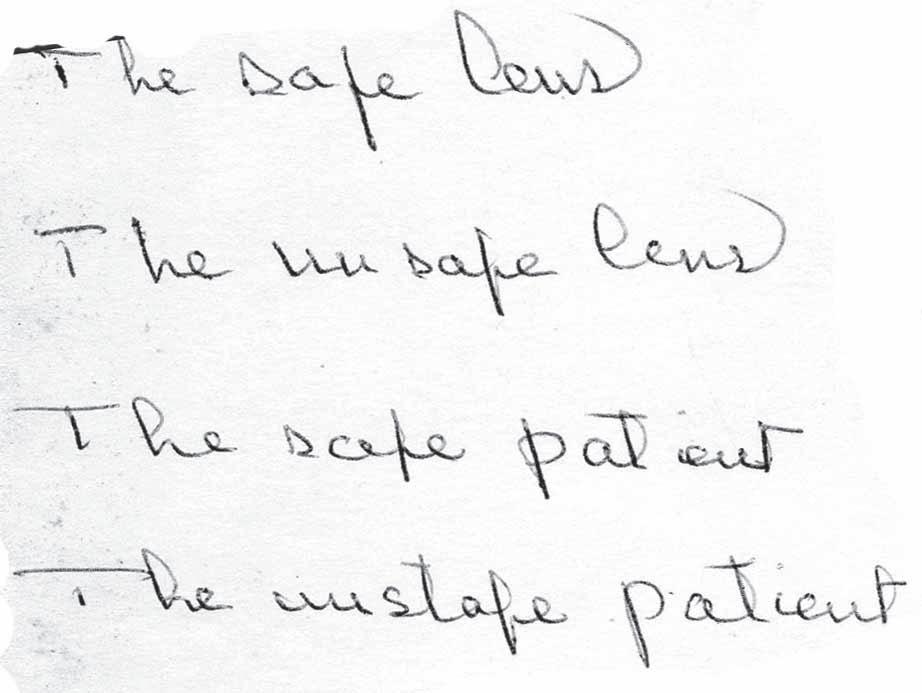 The safe lens
The unsafe lens
The safe patient
The unstafe patient